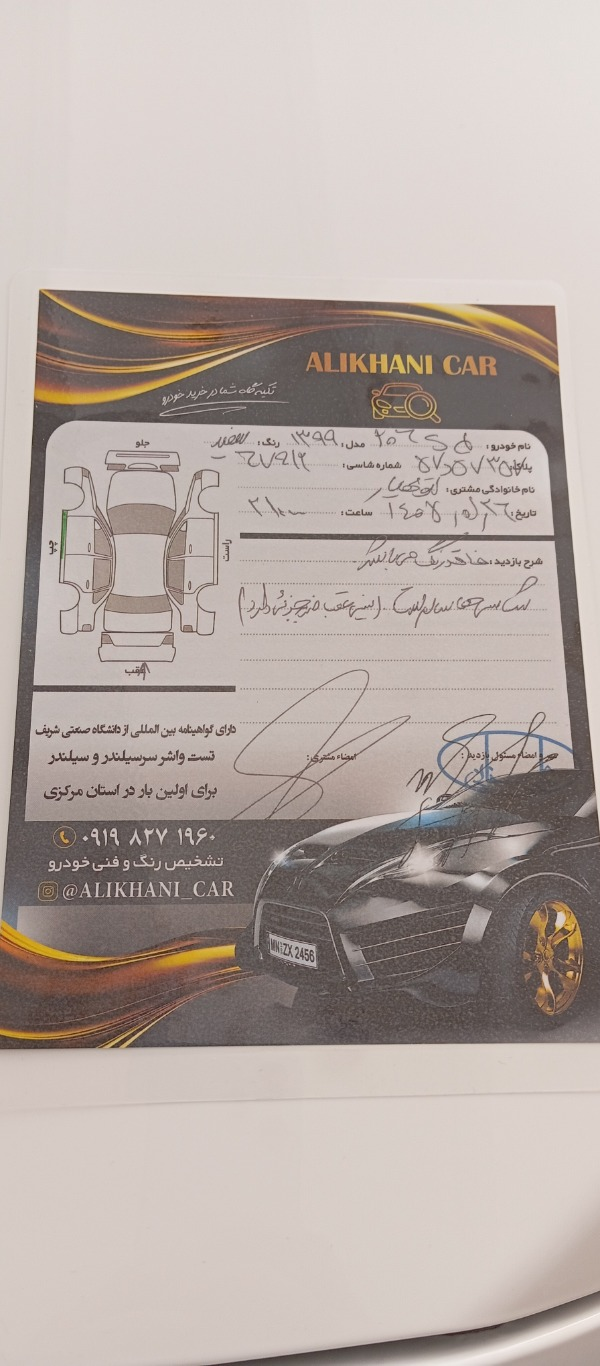 ALIKHANI CAR
تکیه‌گاه شما در خرید خودرو
نام خودرو: ۲۰۶ SD مدل: ۱۳۹۹ رنگ: سفید
پلاک: شماره شاسی:
نام خانوادگی مشتری:
تاریخ: ساعت:
جلو
چپ
راست
عقب
شرح بازدید: فاقد رنگ می باشد
شاسی ها سالم است. (سینی عقب ضربه جزئی دارد)
دارای گواهینامه بین المللی از دانشگاه صنعتی شریف
تست واشر سرسیلندر و سیلندر
برای اولین بار در استان مرکزی
امضاء مشتری:
مهر و امضاء مسئول بازدید:
۰۹۱۹ ۸۲۷ ۱۹۶۰
تشخیص رنگ و فنی خودرو
@ALIKHANI_CAR
MN ZX 2456